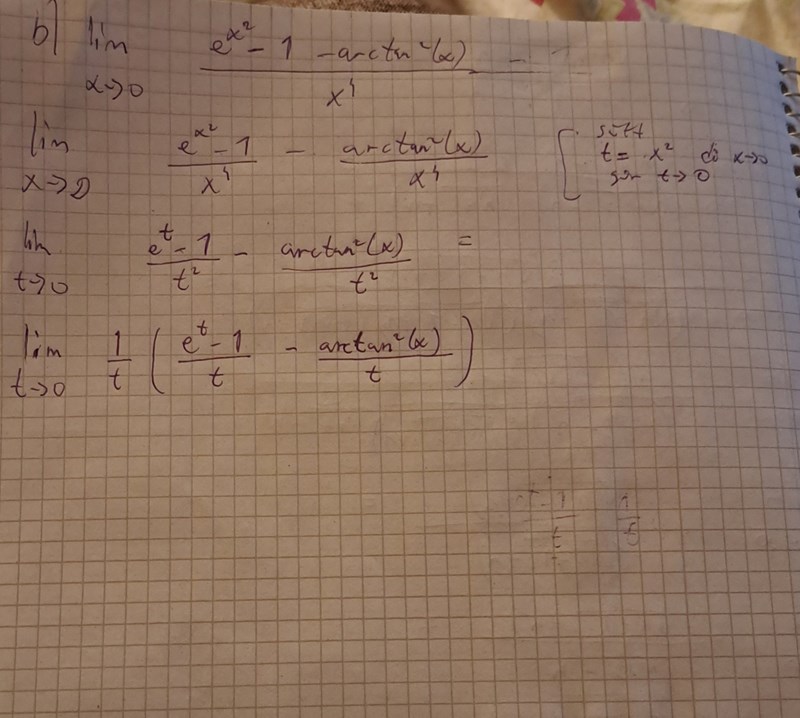 b) lim x→0 (e^(x²) - 1 - arctan²(x)) / x⁴
lim x→0 (e^(x²) - 1)/x⁴ - arctan²(x)/x⁴ [ sätt
t = x² då x→0
t→0
lim t→0 (e^t - 1)/t² - arctan²(x)/t² =
lim t→0 1/t ( (e^t - 1)/t - arctan²(x)/t )